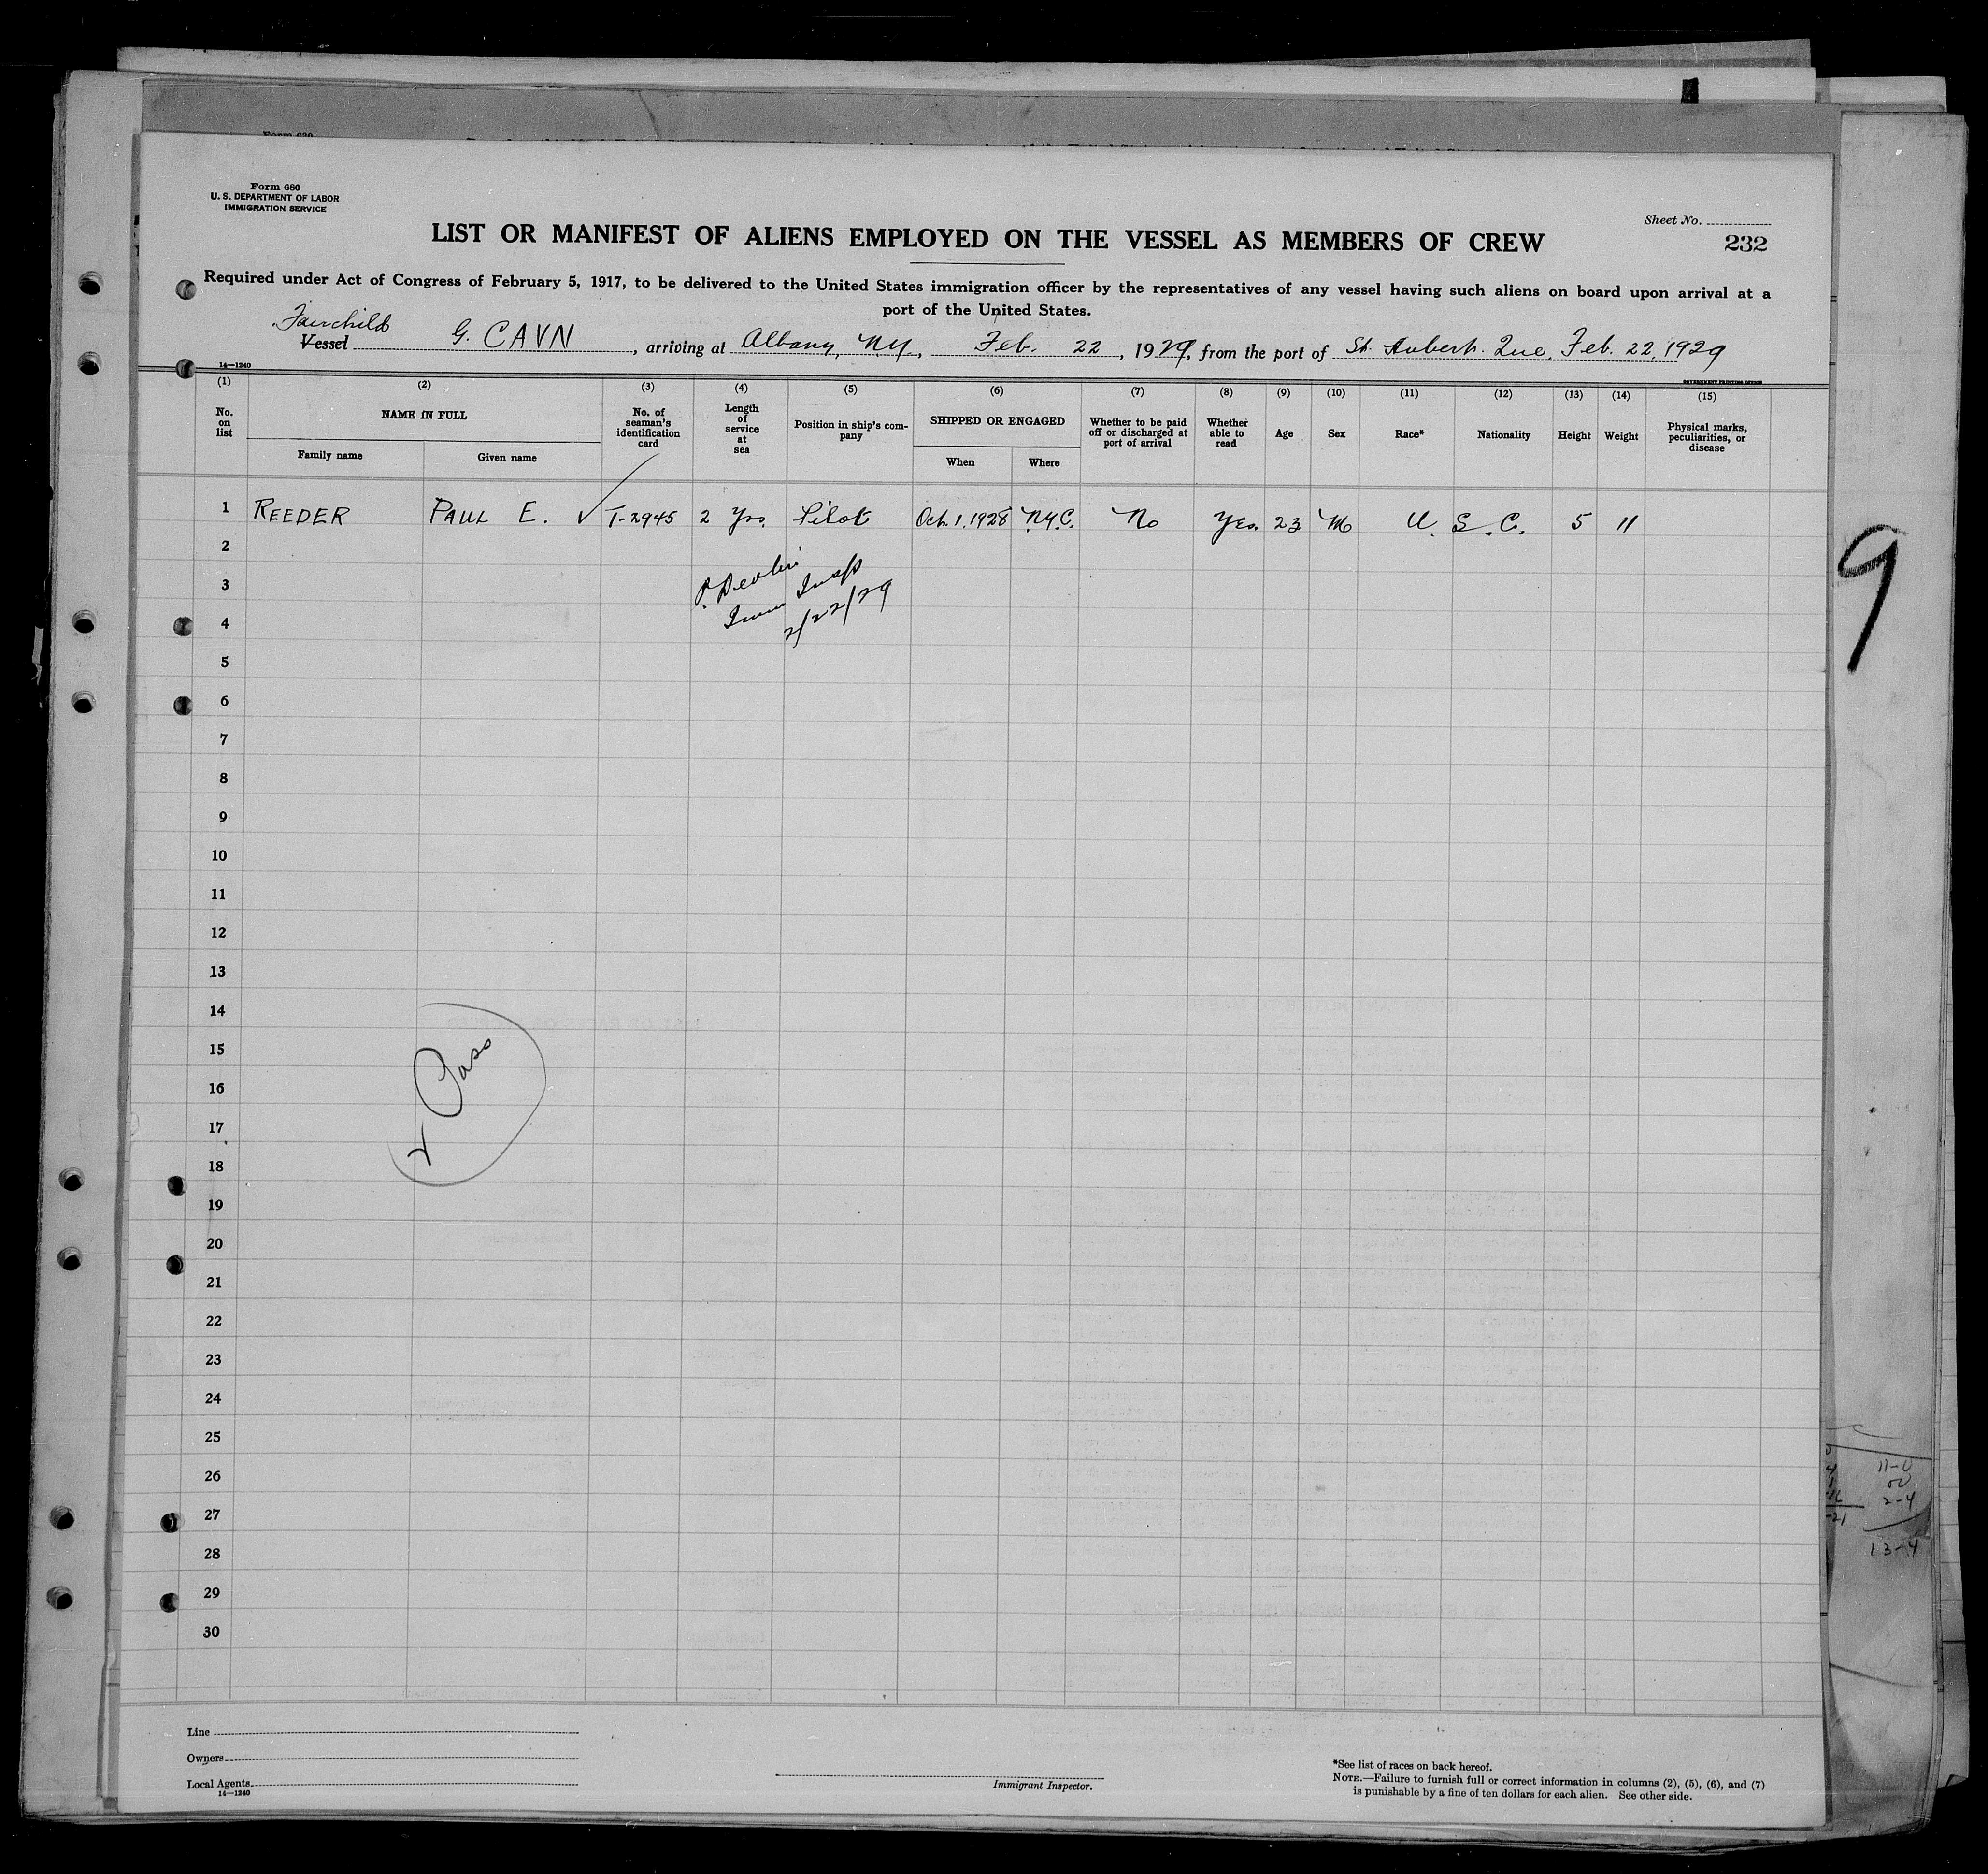 Form 680
U. S. DEPARTMENT OF LABOR
IMMIGRATION SERVICE
Sheet No.
LIST OR MANIFEST OF ALIENS EMPLOYED ON THE VESSEL AS MEMBERS OF CREW
232
Required under Act of Congress of February 5, 1917, to be delivered to the United States immigration officer by the representatives of any vessel having such aliens on board upon arrival at a
port of the United States.
Fairchild
Vessel G. CAVN, arriving at Albany, N.Y., Feb. 22, 1929, from the port of St. Hubert. Que, Feb. 22, 1929
14—1240
GOVERNMENT PRINTING OFFICE
(1) (2) (3) (4) (5) (6) (7) (8) (9) (10) (11) (12) (13) (14) (15)
No. on list
NAME IN FULL
Family name
Given name
No. of seaman's identification card
Length of service at sea
Position in ship's company
SHIPPED OR ENGAGED
When
Where
Whether to be paid off or discharged at port of arrival
Whether able to read
Age
Sex
Race*
Nationality
Height
Weight
Physical marks, peculiarities, or disease
1 REEDER PAUL E. ✓ T-2945 2 Yrs. Pilot Oct. 1, 1928 N.Y.C. No Yes 23 M U. S. C. 5 11
2
P. Devlin
3
Imm Insp
4
2/22/29
5
6
7
8
9
10
11
12
13
14
15
Pass
16
17
18
19
20
21
22
23
24
25
26
27
28
29
30
9
11-0
2-4
13-4
-21
Line
Owners
Local Agents
14—1240
Immigrant Inspector.
*See list of races on back hereof.
NOTE.—Failure to furnish full or correct information in columns (2), (5), (6), and (7)
is punishable by a fine of ten dollars for each alien. See other side.